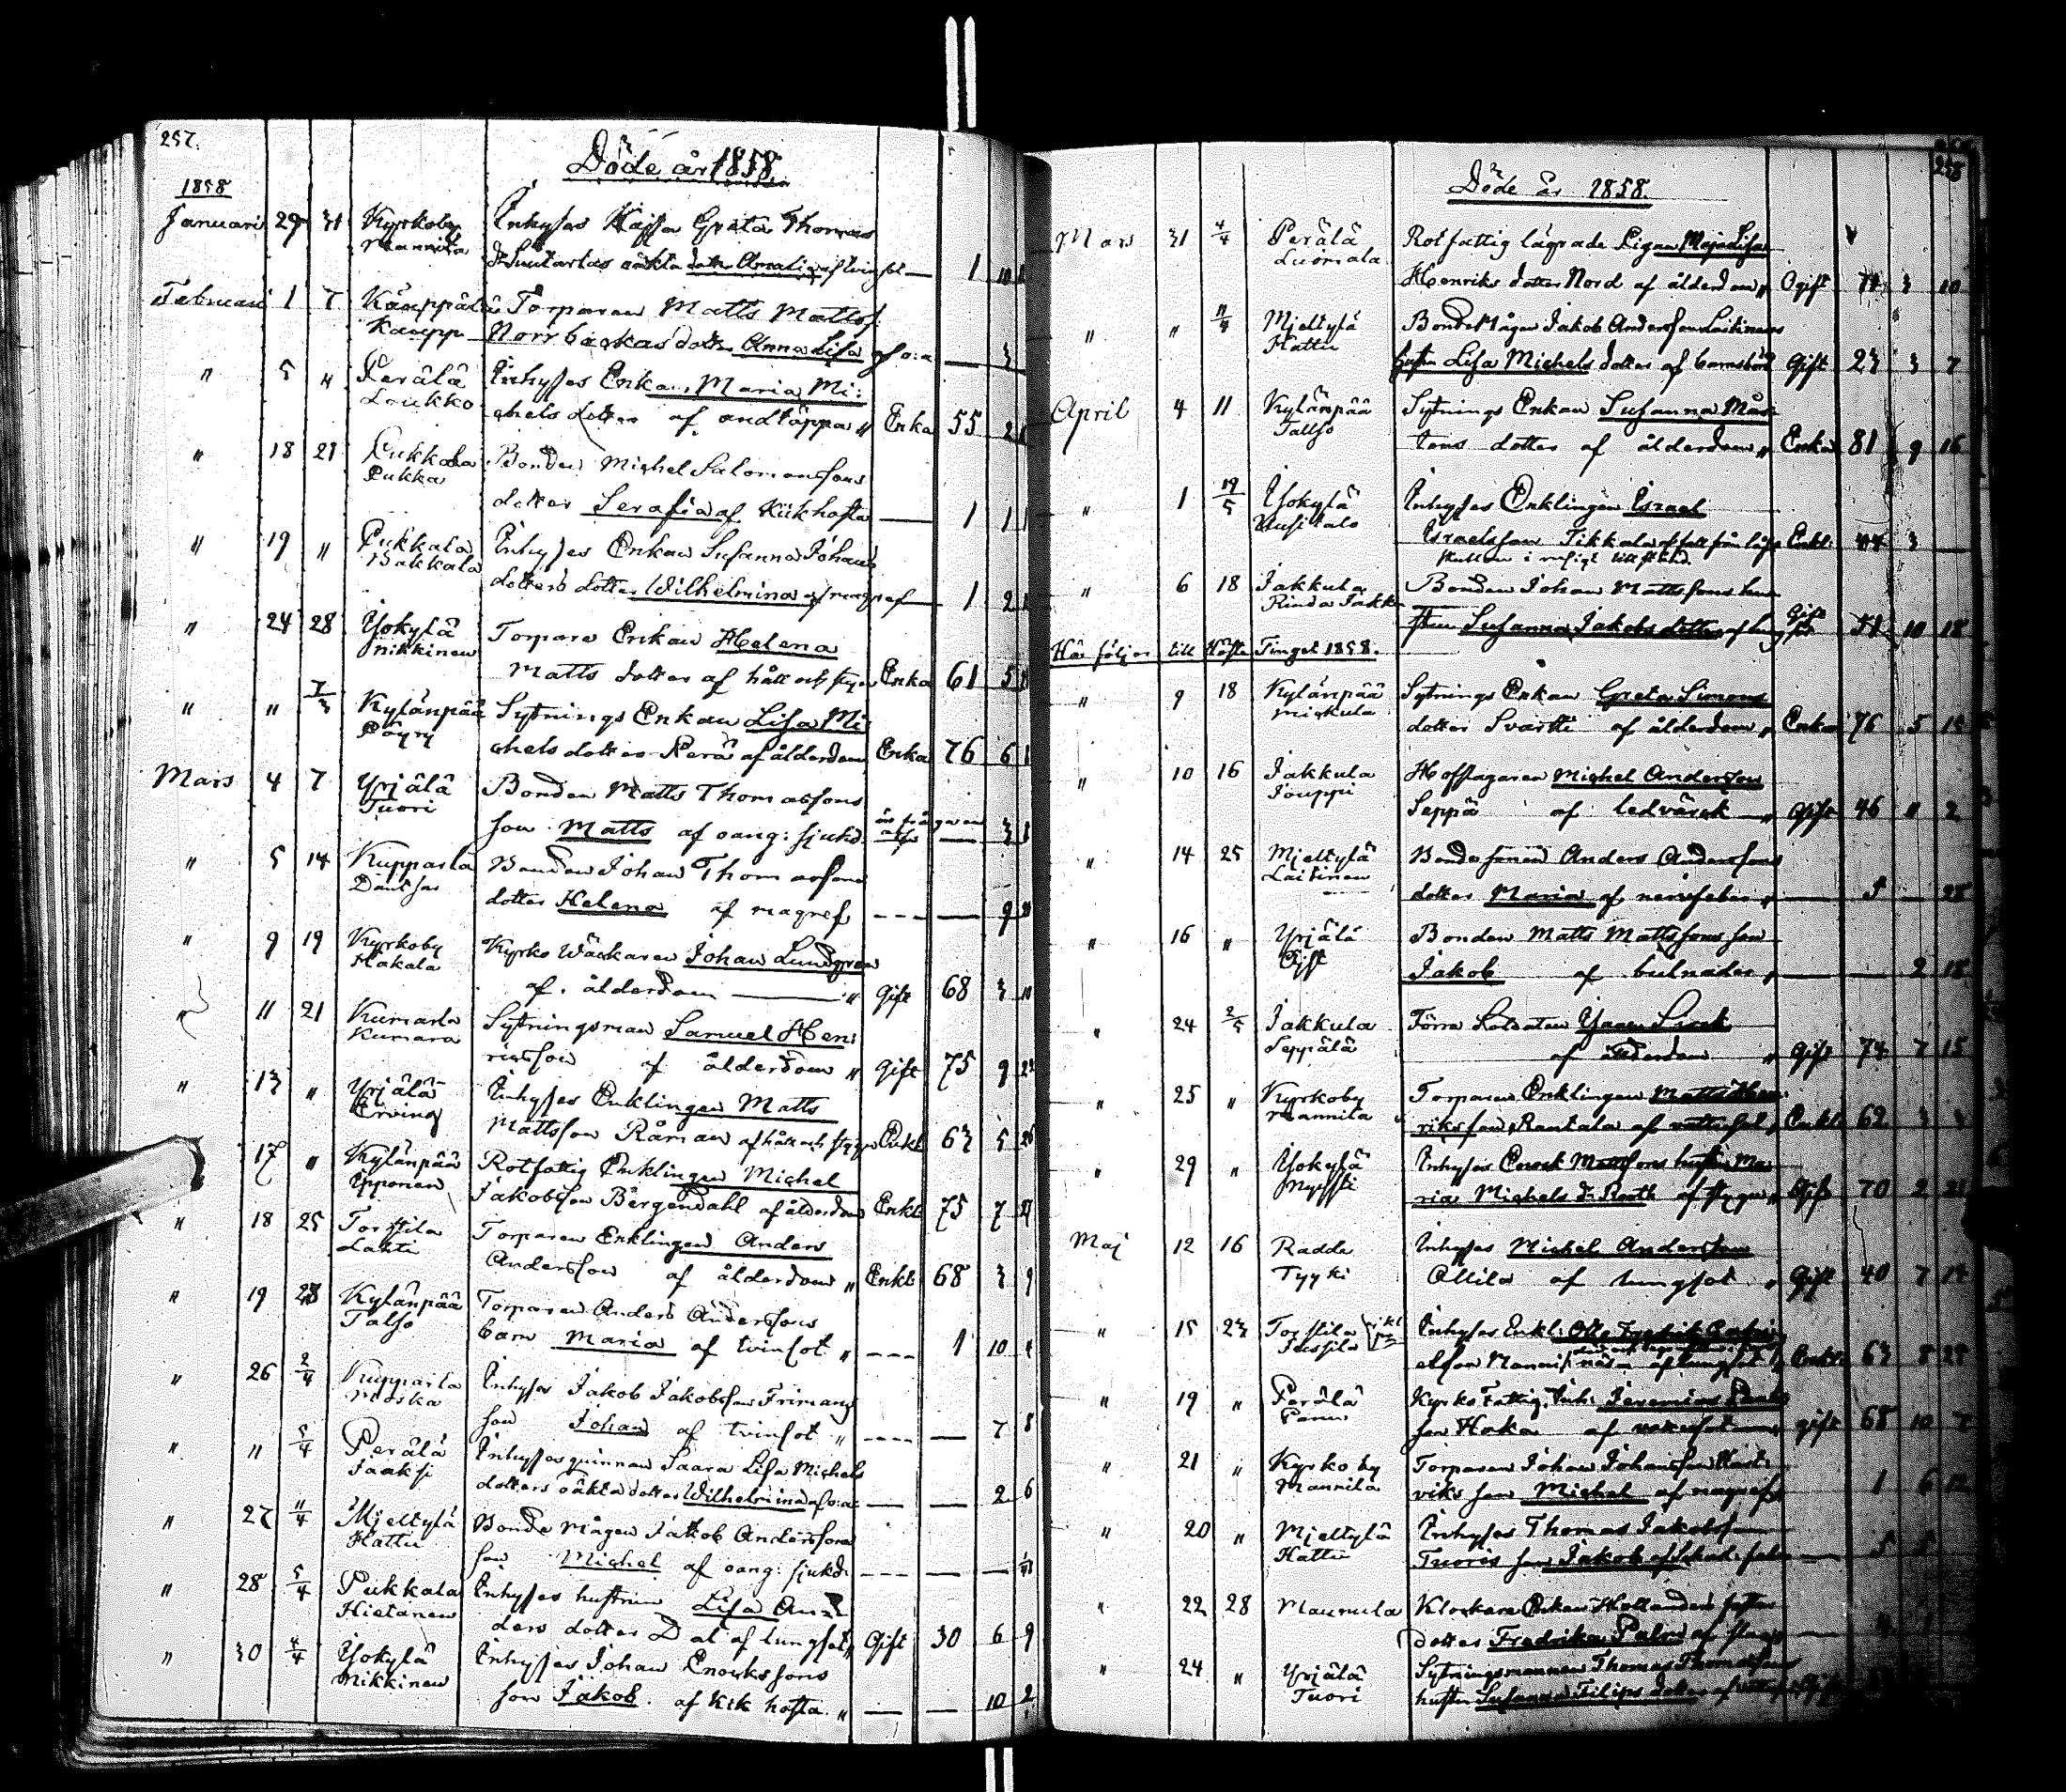 257.
Döde år 1858.
1858
Januari 29 31 Kyrkoby Inhyses Kajsa Greta Thomas
Mannila dr oäkta dotter Amalia af tvinsot — 1 10
Februari 1 7 Kauppala Torparen Matts Matts
Kaupp Norrbackas dotter Anna Lisa af o:a — 3
" 5 " Perälä Inhyses Enkan Maria Mi:
Loukko chels dotter af andtäppa " Enka 55 2
" 18 21 Pukkala Bonden Michel Salomonssons
Pukka dotter Serafia af Kikhosta — 1 1
" 19 " Pukkala Inhyses Enkan Susanna Johans
Bakkala dotters dotter Wilhelmina af magref — 1 2
" 24 28 Yokylä Torpare Enkan Helena
Nikkinen Matts dotter af håll och styng Enka 61 5
" " 7/3 Kylänpää Sytnings Enkan Lisa Mi
Pöyry chels dotter Perä af ålderdom Enka 76 6
Mars 4 7 Yrjälä Bonden Matts Thomassons
Tuori son Matts af oang: sjukd. — 3
" 5 14 Kupparla Bonden Johan Thomassons
dotter Helena af magref --- — 9
" 9 19 Kyrkoby Kyrko Wäckaren Johan Lundgren
Hakala af ålderdom — " Gift 68 3 10
" 11 21 Kumarla Sytningsman Samuel Hen:
Kumara ricsson af ålderdom " Gift 75 9 22
" 13 " Yrjälä Inhyses Enklingen Matts
Erving Mattsson Råman af håll och styng Enkl 63 5 26
17 " Kylänpää Rotfattig Enklingen Michel
Ypponen Jakobsson Bergendahl af ålderdom Enkl 75 7 27
" 18 25 Torstila Torparen Enklingen Anders
Lahti Andersson af ålderdom " Enkl 68 3 9
" 19 28 Kylänpää Torparen Anders Anderssons
Talso barn Maria af tvinsot " --- 1 10 4
" 26 2/4 Kupparla Inhyses Jakob Jakobsson Frimans
Moska son Johan af tvinsot " ---- — 7 8
" " 5/4 Perälä Inhyses quinnan Saara Lisa Michels
Jaaksi dotters oäkta dotter Wilhelmina af o:a: — — 2 6
" 27 11/4 Mjeltylä Bonde Mågen Jakob Anderssons
Hattu son Michel af oang: sjukd. --- — —
" 28 5/4 Pukkala Inhyses hustrun Lisa An
Hietanen ders dotter Dal af lungsot " Gift 30 6 9
" 30 4/4 Yokylä Inhyses Johan Enockssons
Nikkinen son Jakob af Kik hosta. " — — 10 2
258
Döde år 1858.
Mars 31 4/4 Perälä Rotfattig lägrade Pigan Maja Lisa
Luomala Henriks dotter Nord af ålderdom " Ogift 74 3 10
" " 11/4 Mjeltylä Bonde Mågen Jakob Andersson Laitinens
Hattu hustru Lisa Michels dotter af barnsbörd Gift 23 3 7
April 4 11 Kylänpää Sytnings Enkan Susanna Mår
Tallso tens dotter af ålderdom " Enka 81 9 16
" 1 19/5 Yokylä Inhyses Enklingen Israel
Uusitalo Israelsson Tikkala af fall från
i rusigt tillstånd Enkl: 44 3 —
" 6 18 Jakkula Bonden Johan Mattssons hu
Rinda Jakk stru Susanna Jakobs dotter af Gift 51 10 18
Här följer till Höste Tinget 1858.
" 9 18 Kylänpää Sytnings Enkan Greta Simons
Miskula dotter Svartti af ålderdom " Enka 76 5 15
" 10 16 Jakkula Hofslagaren Michel Andersson
Jouppi Seppä af ledvärk " Gift 46 " 2
" 14 25 Mjeltylä Bonde sonen Anders Anderssons
Laitinen dotter Maria af nervfeber " — 5 — 28
" 16 " Yrjälä Bonden Matts Mattssons son
Jakob af bulnader " — — 2 18
" 24 2/5 Jakkula Förra Soldaten
Seppälä af ålderdom " Gift 74 7 15
" 25 " Kyrkoby Torparen Enklingen Matts Hen
Mannila riksson Rautala af Enkl: 62 3 3
" 29 " Yokylä Inhyses Enock Mattssons hustru Ma
ria Michels dr Rooth af styng " Gift 70 2 21
Maj 12 16 Radda Inhyses Michel Andersson
Tyyki Allila af lungsot " Gift 40 7 14
" 15 23 Torstila Inhyses Enkl: Otto Fredrik
Jussila elsson af lungsot Enkl: 63 8 25
" 19 " Perälä Kyrko Fattig, Inh: Jeremias
Panu son Hoka af gift 68 10 7
" 21 " Kyrkoby Torparen Johan Johansson Näst
Mannila viks son Michel af magref " 1 6 12
" 20 " Mjeltylä Inhyses Thomas Jakobsson
Hattu Tuoris son Jakob af — 5 5
" 22 28 Maunula Klockare Enkan Hollanders foster
dotter Fredrika Palm af slag
" 24 " Yrjälä Sytningsmannen Thomas Thomassons
Tuori hustru Susanna Filips dotter af